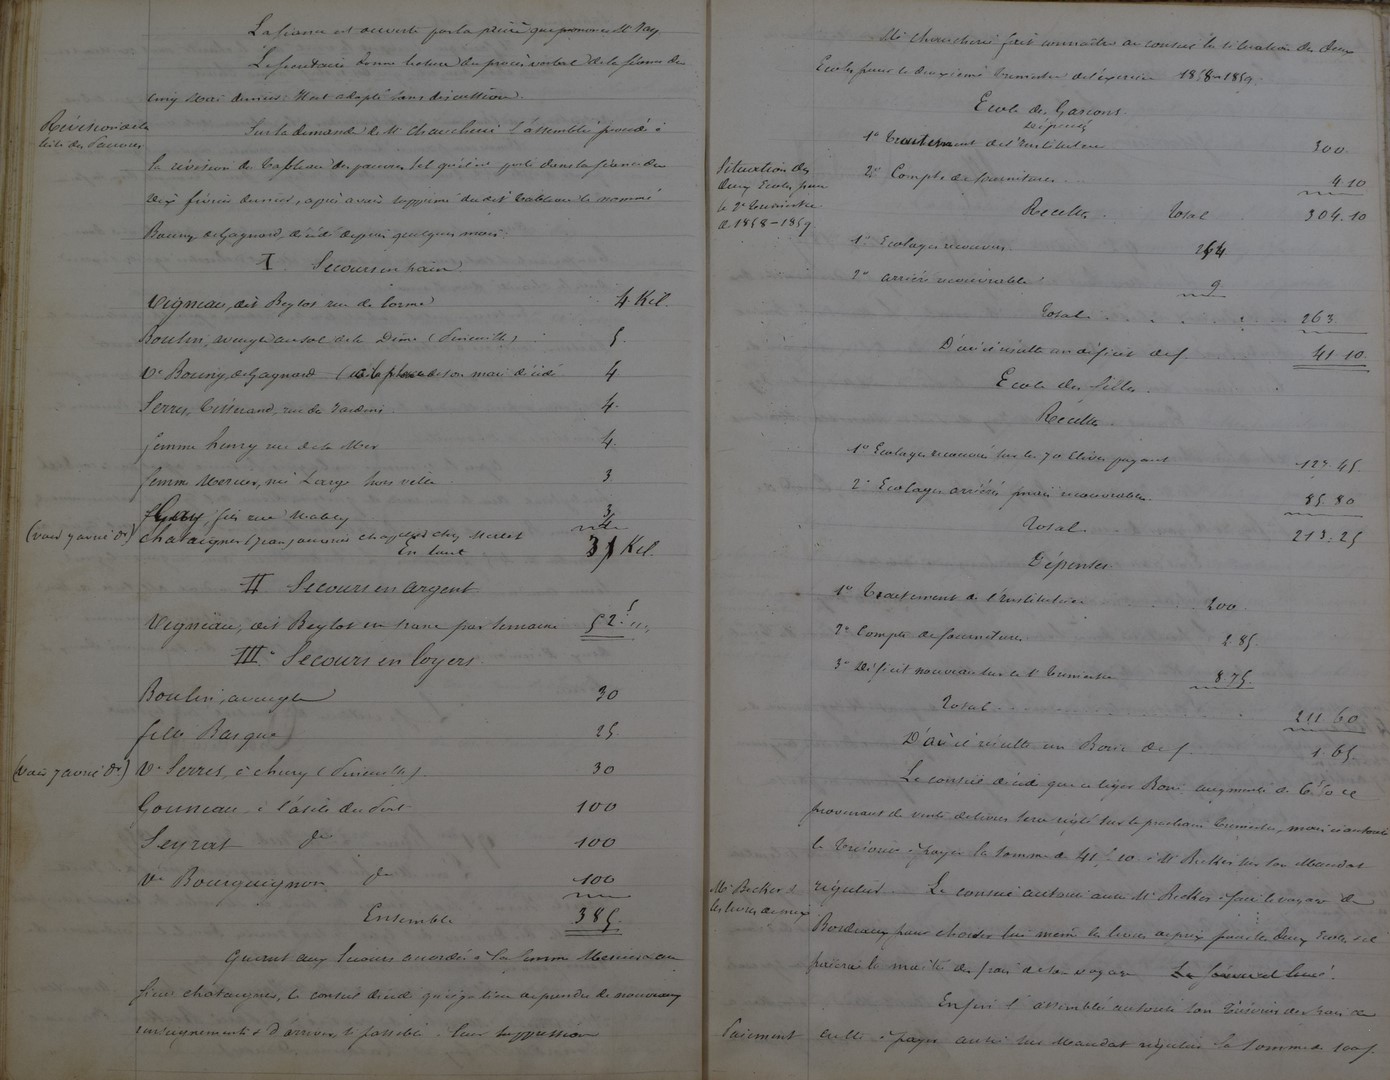 La séance est ouverte par la prière que prononce Mr Pay
Le secrétaire donne lecture du procès verbal de la séance du
cinq mars dernier. Il est adopté sans discussion.
Révision de la
liste des Pauvres
Sur la demande de Mr Chaucherie l'assemblée procède à
la révision du Tableau des pauvres tel qu'il est porté dans la séance du
dix février dernier, après avoir supprimé du dit Tableau le nommé
Bouny de Gagnard, décédé depuis quelques mois.
I. Secours en pain
Vigneau, dit Beylot rue de Lorme 4 Kil.
Boulin, aveugle au sol de la Dime (Pineuilh) 5.
Ve Bouny, de Gagnard à la place de son mari décédé 4
Serres, Tisserand, rue des Jardins 4.
femme henry rue de la Mer 4.
femme Mercier, née Large hors ville 3
fils rue Mably 3
(voir 7 avril der) chataignes en tout 31 Kil.
II Secours en argent
Vigneau, dit Beylot un franc par semaine 52 f
III. Secours en loyers
Boulin, aveugle 30
fille Basque 25.
(voir 7 avril der) Ve Serres, (Pineuilh). 30
Gouneau à l'asile du Port 100
Seyrat do 100
Ve Bourguignon do 100
Ensemble 385.
Quant aux secours accordés à la femme Mercier et au
sieur chataignes, le conseil décide qu'il y a lieu de prendre de nouveaux
renseignements & d'arriver, si possible à leur suppression
Mr Chaucherie fait connaître au conseil la situation des deux
Ecoles pour le deuxième trimestre de l'exercice 1858-1859.
Ecole de Garçons
Dépenses
1o Traitement de l'Instituteur 300
Situation des
deux Ecoles pour
le 2e trimestre
de 1858-1859
2o Compte de fournitures 4 10
Recettes. Total 304.10
1o Ecolages recouvrés 254
2o arriéré recouvrable 9
Total 263
D'où il résulte un déficit de f 41.10.
Ecole des filles.
Recettes
1o Ecolages recouvrés sur les 70 Elèves payant 127.45.
2o Ecolages arriérés mais recouvrables 85.80
Total 213.25
Dépenses
1o Traitement de l'Institutrice 200.
2o Compte de fournitures 2 85.
3o Déficit nouveau sur le 1er Trimestre 8.75.
Total 211 60
D'où il résulte un Boni de f. 1.65.
Le conseil décide que ce léger Boni augmenté de 6f 50 ce
provenant de vente de livres sera réglé sur le prochain trimestre, mais il autorise
le Trésorier à payer la somme de 41f 10 à Mr Becker sur son Mandat
Mr Becker &
les livres de prix
régulier. Le conseil autorise aussi Mr Becker à faire le voyage de
Bordeaux pour choisir lui même les livres de prix pour les deux Ecoles & il
paiera la moitié des frais de son voyage
Enfin l'assemblée autorise son Trésorier des frais de
Paiement
culte à payer aussi sur Mandat régulier la somme de 100f.